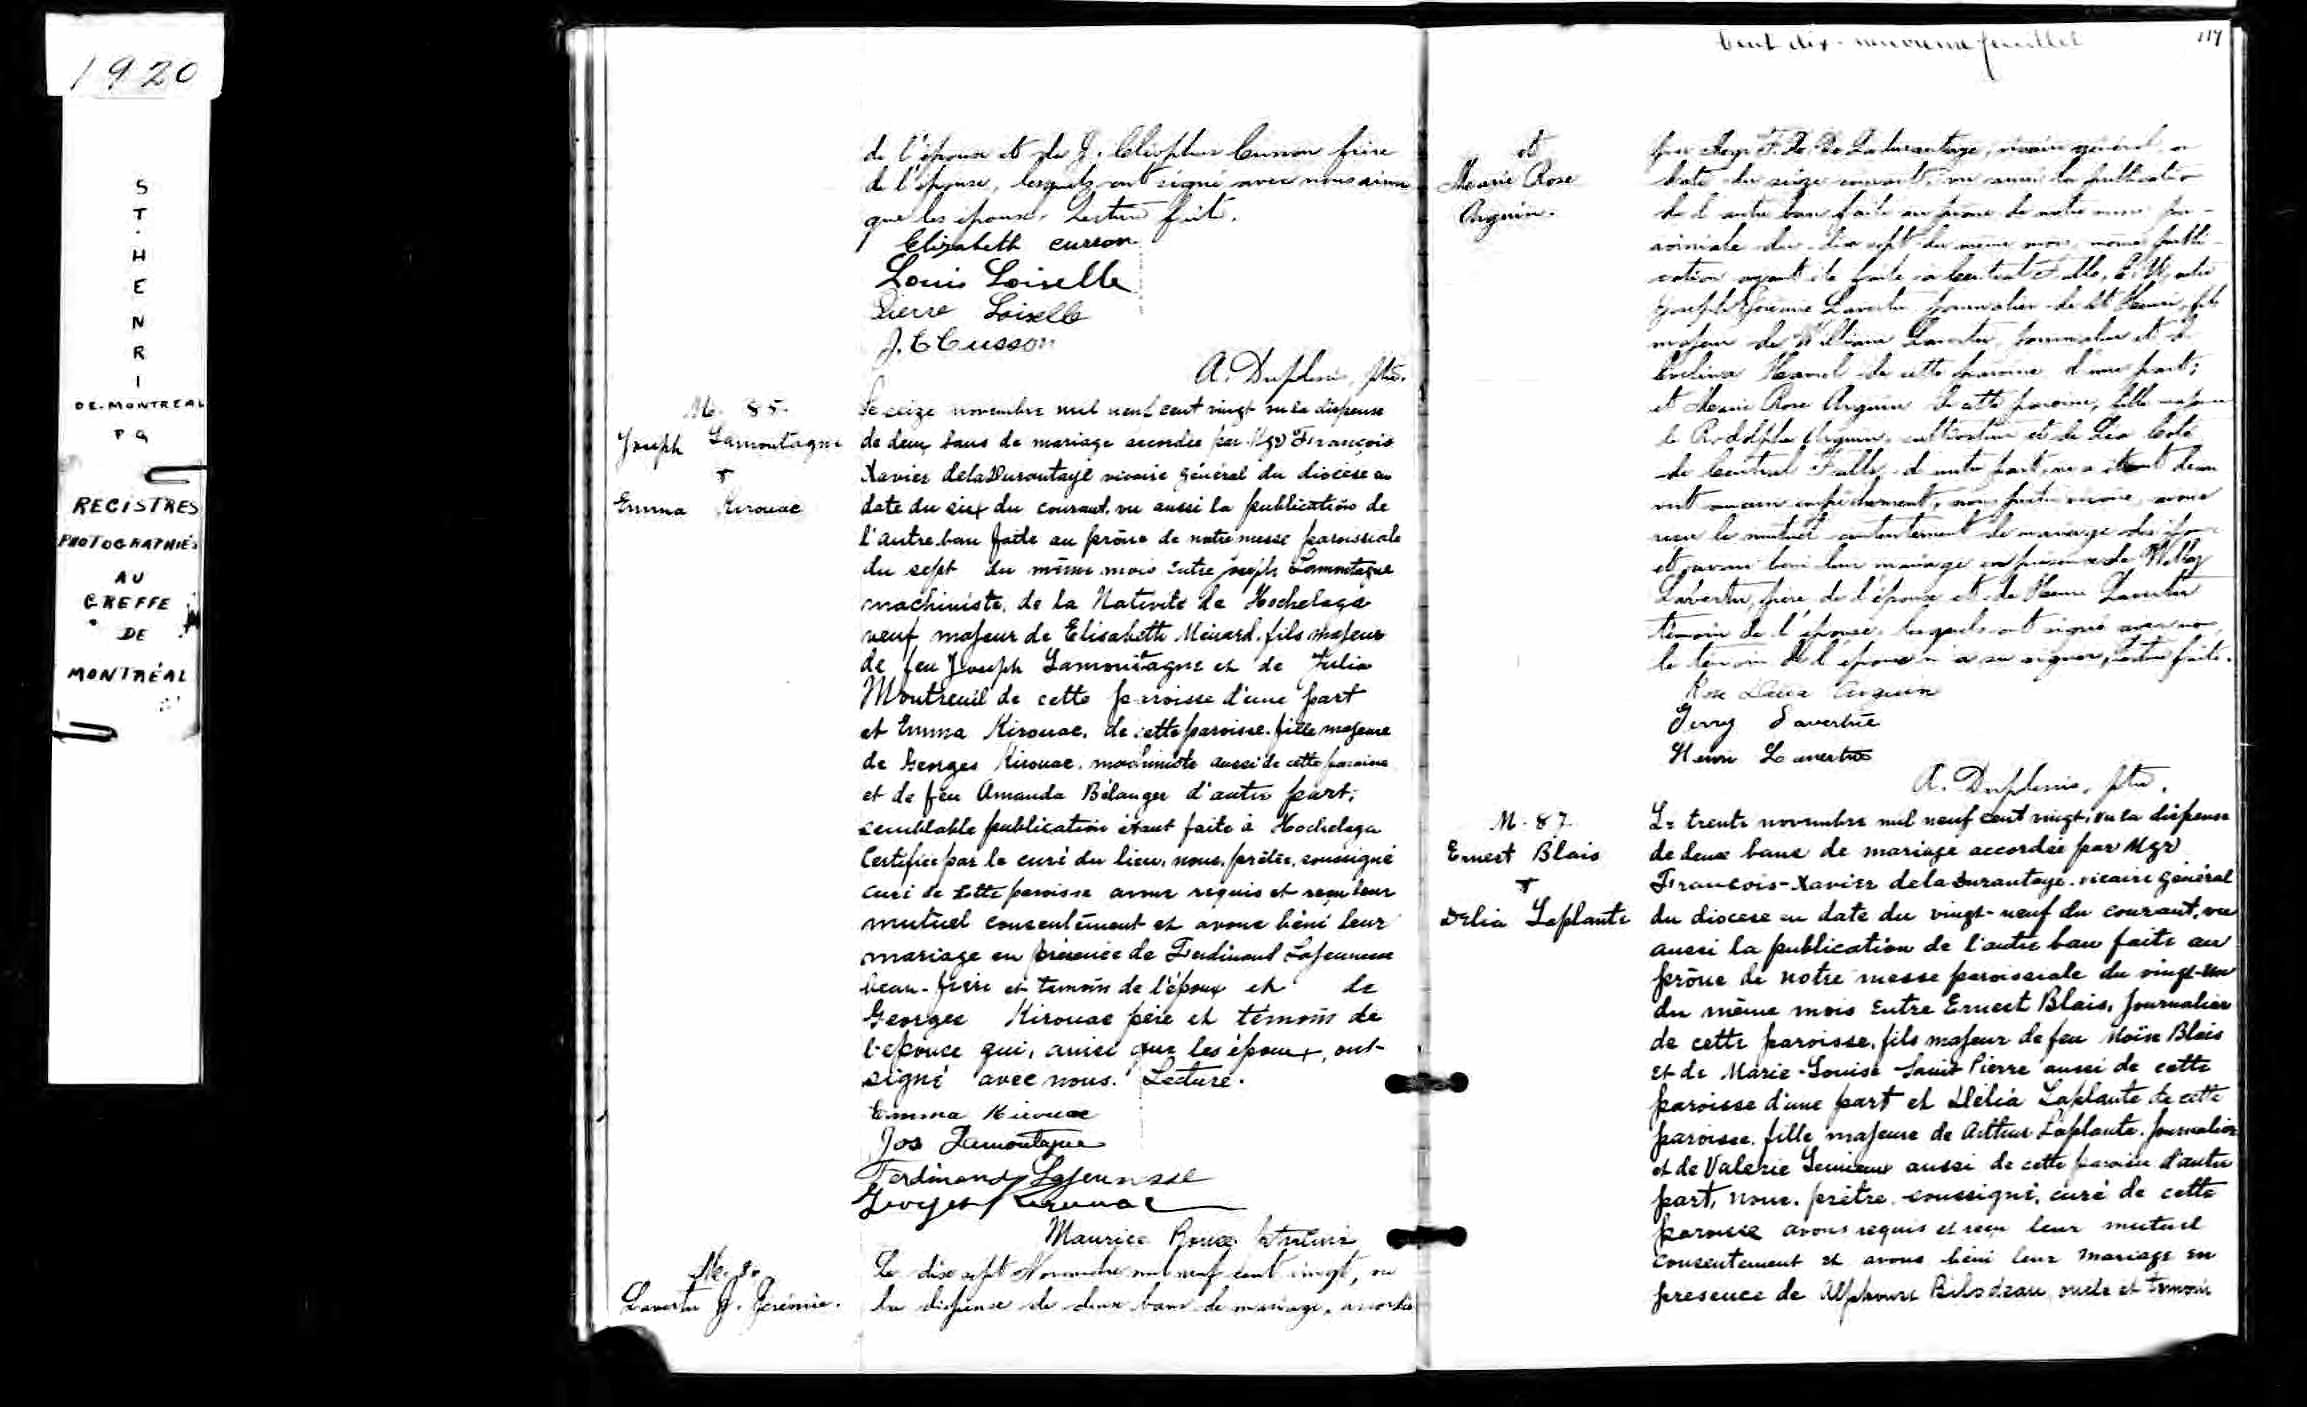 1920
ST. HENRI
DE. MONTREAL
P Q
REGISTRES
PHOTOGRAPHIÉS
AU
GREFFE
DE
MONTRÉAL
de l'époux et de J. Cléophas Cusson frère
de l'épouse, lesquels ont signé avec nous ainsi
que les époux. Lecture faite.
Elizabeth Cusson
Louis Loiselle
Pierre Loiselle
J. C Cusson
A. Duplessis, ptre.
M. 85.
Joseph Lamontagne
+
Emma Kirouac
Le seize novembre mil neuf cent vingt vu la dispense
de deux bans de mariage accordée par Mgr François
Xavier de la Durantaye vicaire général du diocèse en
date du six du courant, vu aussi la publication de
l'autre ban faite au prône de notre messe paroissiale
du sept du même mois entre Joseph Lamontagne
machiniste, de la Nativité de Hochelaga
veuf majeur de Elisabeth Ménard, fils majeur
de feu Joseph Lamontagne et de Julie
Montreuil de cette paroisse d'une part
et Emma Kirouac, de cette paroisse, fille majeure
de Georges Kirouac, machiniste aussi de cette paroisse
et de feu Amanda Bélanger d'autre part,
semblable publication étant faite à Hochelaga
Certifiée par le curé du lieu, nous, prêtre, soussigné
curé de cette paroisse avons requis et reçu leur
mutuel consentement et avons béni leur
mariage en présence de Ferdinand Lajeunesse
beau-frère et témoin de l'époux et de
Georges Kirouac père et témoin de
l'épouse qui, ainsi que les époux, ont
signé avec nous. Lecture.
Emma Kirouac
Jos Lamontagne
Ferdinand Lajeunesse
Georges Kirouac
Maurice
M.
Lavertu J. Jérémie.
Le dix sept Novembre mil neuf cent vingt, vu
la dispense de deux bans de mariage, accordée
Cent dix-neuvième feuillet
et
Marie Rose
Arguin.
par Mgr F. X. De Ladurantaye, vicaire général en
date du seize courant, vu aussi la publication
de l'autre ban faite au prône de notre messe pa-
roissiale du dix sept du même mois, même publi-
cation ayant été faite à Central Falls, entre
Joseph Jérémie Lavertu journalier de St Henri, fils
majeur de William Lavertu journalier et de
Hamel de cette paroisse d'une part;
et Marie Rose Arguin de cette paroisse, fille majeure
de Rodolphe Arguin, cultivateur et de Léa Coté
de Central Falls, d'autre part, ne
aucun empêchement, nous prêtre vicaire avons
reçu le mutuel consentement de mariage des époux
et avons béni leur mariage en présence de Willy
Lavertu, frère de l'époux et de Henri Lavertu
témoin de l'épouse, lesquels ont signé avec nous,
le témoin de l'époux n'a su signer, lecture faite.
Rose Arguin
Jerry Lavertue
Henri Lavertue
A. Duplessis, ptre.
M. 87.
Ernest Blais
+
Delia Laplante
Le trente novembre mil neuf cent vingt, vu la dispense
de deux bans de mariage accordée par Mgr
François-Xavier de la Durantaye, vicaire général
du diocèse en date du vingt-neuf du courant, vu
aussi la publication de l'autre ban faite au
prône de notre messe paroissiale du vingt-un
du même mois entre Ernest Blais, journalier
de cette paroisse, fils majeur de feu Moïse Blais
et de Marie-Louise Saint Pierre aussi de cette
paroisse d'une part et Délia Laplante de cette
paroisse, fille majeure de Arthur Laplante, journalier
et de Valerie Lemieux aussi de cette paroisse d'autre
part, nous, prêtre soussigné, curé de cette
paroisse avons requis et reçu leur mutuel
consentement et avons béni leur mariage en
présence de Alphonse Bilodeau oncle et témoin